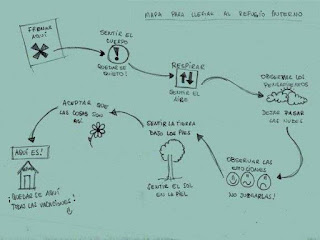 MAPA PARA LLEGAR AL REFUGIO INTERNO
FRENAR
AQUÍ
SENTIR EL
CUERPO
QUEDARSE
QUIETO!
RESPIRAR
SENTIR EL
AIRE
OBSERVAR LOS
PENSAMIENTOS
DEJAR PASAR
LAS NUBES
OBSERVAR LAS
EMOCIONES
NO JUZGARLAS!
SENTIR LA TIERRA
BAJO LOS PIES
SENTIR EL SOL
EN LA PIEL
ACEPTAR QUE
LAS COSAS SON
ASÍ.
AQUÍ ES!
¡QUEDARSE AQUÍ
TODAS LAS VACACIONES!